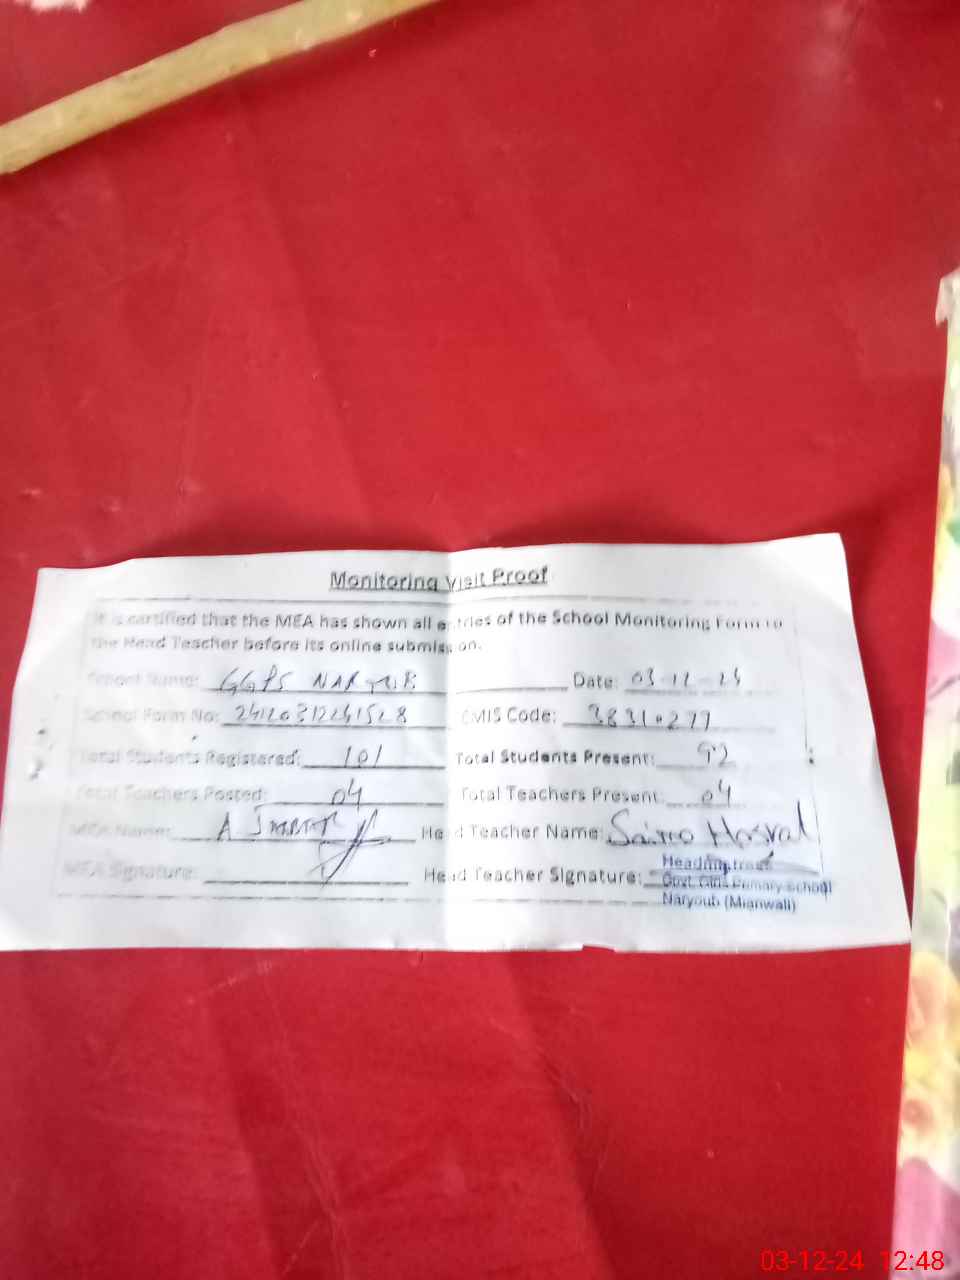 Monitoring Visit Proof
It is certified that the MEA has shown all entries of the School Monitoring Form to
the Head Teacher before its online submission.
School Name: GGPS NARYUB Date: 03-12-24
School Form No: 2412031241528 EMIS Code: 38310277
Total Students Registered: 101 Total Students Present: 92
Total Teachers Posted: 04 Total Teachers Present: 04
MEA Name: A JABBAR Head Teacher Name:
MEA Signature: Head Teacher Signature:
Headmistress
Govt. Girls Primary School
Naryoub (Mianwali)
03-12-24 12:48